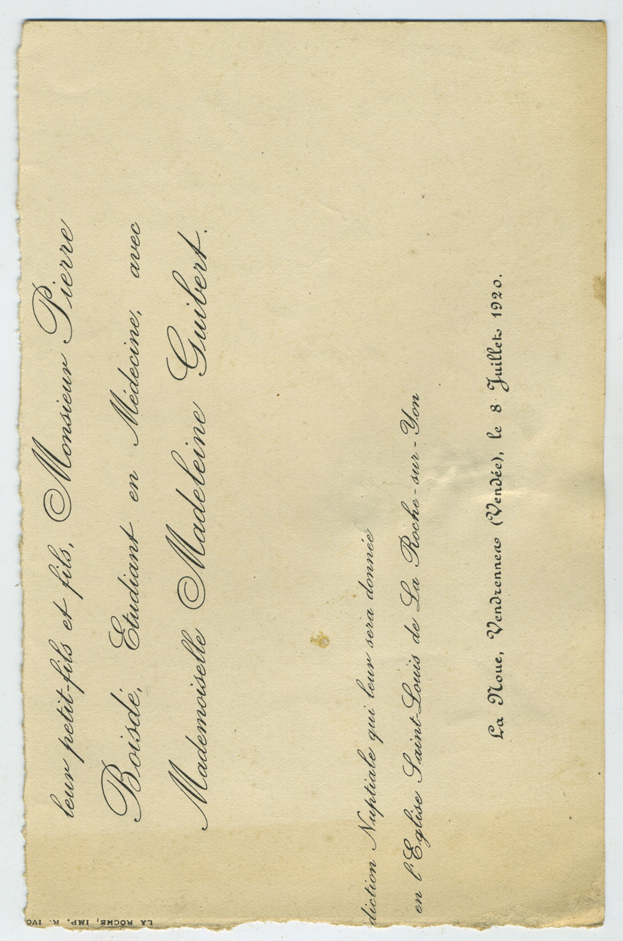 leur petit-fils et fils, Monsieur Pierre
Boisdé, Etudiant en Médecine, avec
Mademoiselle Madeleine Guibert.
diction Nuptiale qui leur sera donnée
en l'Eglise Saint-Louis de La Roche-sur-Yon
La Noue, Vendrennes (Vendée), le 8 Juillet 1920.
LA ROCHE, IMP. R. IVO